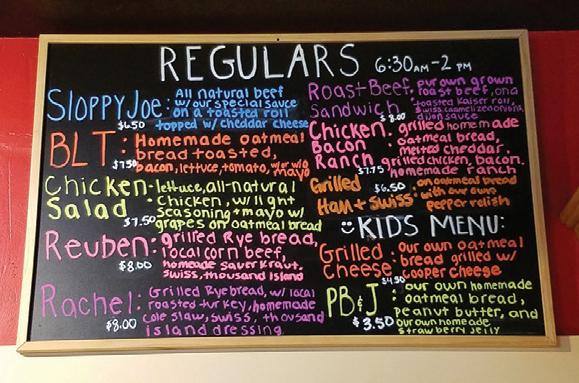 REGULARS 6:30AM-2 PM
Sloppy Joe: All natural beef
w/our special sauce
on a toasted roll
$6.50 topped w/cheddar cheese
BLT: Homemade oatmeal
bread toasted,
$7.50 bacon, lettuce, tomato, w or w/o mayo
Chicken Salad - lettuce, all-natural
chicken, w/light
seasoning + mayo w/
$7.50 grapes on oatmeal bread
Reuben: grilled Rye bread,
local corn beef,
$8.00 homeade sauer kraut,
swiss, thousand island
Rachel: Grilled Rye bread, w/local
roasted turkey, homemade
$8.00 cole slaw, swiss, thousand
island dressing
Roast Beef Sandwich - our own grown
roast beef, on a
toasted kaiser roll,
swiss, caramelized onions,
$8.00 dijon sauce
Chicken Bacon Ranch - grilled homemade
oatmeal bread,
melted cheddar,
grilled chicken, bacon,
$7.75 homemade ranch
Grilled Ham + Swiss: on oatmeal bread
$6.50 with our own
pepper relish
KID'S MENU:
Grilled Cheese: our own oatmeal
bread grilled w/
$4.50 cooper cheese
PB&J: our own homemade
oatmeal bread,
peanut butter, and
$3.50 our own homeade
strawberry jelly